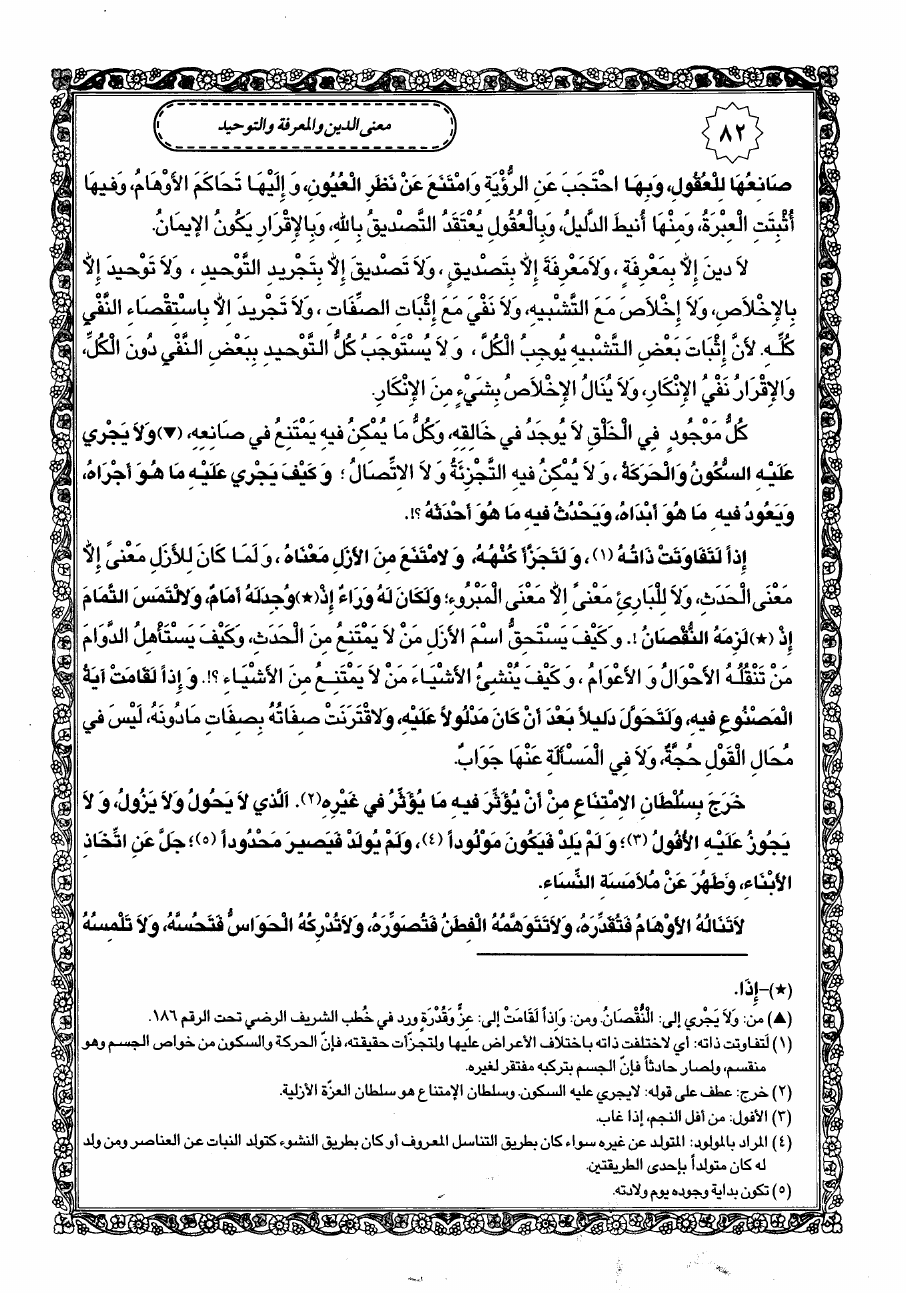 ٨٢
معنى الدين والمعرفة والتوحيد
صَانِعُهَا لِلْعُقُولِ، وَبِهَا احْتَجَبَ عَنِ الرُّؤْيَةِ وَامْتَنَعَ عَنْ نَظَرِ الْعُيُونِ، وَإِلَيْهَا تَحَاكَمَ الأَوْهَامُ، وَفِيهَا
أُثْبِتَتِ الْعِبْرَةُ، وَمِنْهَا أُنيطَ الدَّلِيلُ، وَبِالْعُقُولِ يُعْتَقَدُ التَّصْدِيقُ بِاللهِ، وَبِالإِقْرَارِ يَكُونُ الإيمَانُ.
لاَ دينَ إِلاَّ بِمَعْرِفَةٍ ، وَلاَمَعْرِفَةَ إِلاَّ بِتَصْديقٍ ، وَلاَ تَصْديقَ إِلاَّ بِتَجْريدِ التَّوْحيدِ ، وَلاَ تَوْحيدَ إِلاَّ
بِالإِخْلاَصِ، وَلاَ إِخْلاَصَ مَعَ التَّشْبيهِ، وَلاَ نَفْيَ مَعَ إِثْبَاتِ الصِّفَاتِ ، وَلاَ تَجْريدَ إلاَّ بِاسْتِقْصَاءِ النَّفْيِ
كُلِّهِ. لأَنَّ إِثْبَاتَ بَعْضِ التَّشْبيهِ يُوجِبُ الْكُلَّ ، وَلاَ يُسْتَوْجَبُ كُلُّ التَّوْحيدِ بِبَعْضِ النَّفْيِ دُونَ الْكُلِّ،
وَالإِقْرَارُ نَفْيُ الإِنْكَارِ، وَلاَ يُنَالُ الإِخْلاَصُ بِشَيْءٍ مِنَ الإِنْكَارِ.
كُلُّ مَوْجُودٍ فِي الْخَلْقِ لاَ يُوجَدُ في خَالِقِهِ، وَكُلُّ مَا يُمْكِنُ فيهِ يَمْتَنِعُ في صَانِعِهِ، (▼)وَلاَ يَجْري
عَلَيْهِ السُّكُونُ وَالْحَرَكَةُ ، وَلاَ يُمْكِنُ فيهِ التَّجْزِئَةُ وَلاَ الاتِّصَالُ ؛ وَكَيْفَ يَجْري عَلَيْهِ مَا هُوَ أَجْرَاهُ،
وَيَعُودُ فيهِ مَا هُوَ أَبْدَاهُ، وَيَحْدُثُ فيهِ مَا هُوَ أَحْدَثَهُ ؟!.
إِذاً لَتَفَاوَتَتْ ذَاتُهُ (١) ، وَلَتَجَزَّأَ كُنْهُهُ، وَلاَمْتَنَعَ مِنَ الأَزَلِ مَعْنَاهُ ، وَلَمَا كَانَ لِلأَزَلِ مَعْنىً إِلاَّ
مَعْنَى الْحَدَثِ، وَلاَ لِلْبَارِئِ مَعْنىً إِلاَّ مَعْنَى الْمَبْرُوءِ؛ وَلَكَانَ لَهُ وَرَاءٌ إِذْ(★)وُجِدَلَهُ أَمَامٌ، وَلالْتَمَسَ التَّمَامَ
إِذْ (★)لَزِمَهُ النُّقْصَانُ !. وَكَيْفَ يَسْتَحِقُّ اسْمَ الأَزَلِ مَنْ لاَ يَمْتَنِعُ مِنَ الْحَدَثِ، وَكَيْفَ يَسْتَأْهِلُ الدَّوَامَ
مَنْ تَنْقُلُهُ الأَحْوَالُ وَ الأَعْوَامُ ، وَكَيْفَ يُنْشِئُ الأَشْيَاءَ مَنْ لاَ يَمْتَنِعُ مِنَ الأَشْيَاءِ ؟!. وَإِذاً لَقَامَتْ آيَةُ
الْمَصْنُوعِ فيهِ، وَلَتَحَوَّلَ دَليلاً بَعْدَ أَنْ كَانَ مَدْلُولاً عَلَيْهِ، وَلاقْتَرَنَتْ صِفَاتُهُ بِصِفَاتِ مَادُونَهُ، لَيْسَ في
مُحَالِ الْقَوْلِ حُجَّةٌ، وَلاَ فِي الْمَسْأَلَةِ عَنْهَا جَوَابٌ.
خَرَجَ بِسُلْطَانِ الإِمْتِنَاعِ مِنْ أَنْ يُؤَثِّرَ فيهِ مَا يُؤَثِّرُ في غَيْرِهِ(٢). اَلَّذي لاَ يَحُولُ وَلاَ يَزُولُ، وَ لاَ
يَجُوزُ عَلَيْهِ الأُفُولُ (٣)؛ وَلَمْ يَلِدْ فَيَكُونَ مَوْلُوداً (٤)، وَلَمْ يُولَدْ فَيَصيرَ مَحْدُوداً (٥)؛ جَلَّ عَنِ اتِّخَاذِ
الأَبْنَاءِ، وَطَهُرَ عَنْ مُلاَمَسَةِ النِّسَاءِ.
لاَتَنَالُهُ الأَوْهَامُ فَتُقَدِّرَهُ، وَلاَتَتَوَهَّمُهُ الْفِطَنُ فَتُصَوِّرَهُ، وَلاَتُدْرِكُهُ الْحَوَاسُّ فَتُحِسَّهُ، وَلاَ تَلْمِسُهُ
(★)-إِذَا.
(▲) من: وَلاَ يَجْرِي إلى: الْنُّقْصَانُ. ومن: وَإِذاً لَقَامَتْ إلى: عِزٌّ وَقُدْرَةٍ ورد في خُطب الشريف الرضي تحت الرقم ١٨٦.
(١) لَتفاوتت ذاته: أي لاختلفت ذاته باختلاف الأعراض عليها ولتجزّأت حقيقته، فإنّ الحركة والسكون من خواص الجسم وهو
منقسم، ولصار حادثاً فإنّ الجسم بتركبه مفتقر لغيره.
(٢) خرج: عطف على قوله: لايجري عليه السكون. وسلطان الإمتناع هو سلطان العزّة الأزلية.
(٣) الأفول: من أفل النجم، إذا غاب.
(٤) المراد بالمولود: المتولد عن غيره سواء كان بطريق التناسل المعروف أو كان بطريق النشوء كتولد النبات عن العناصر ومن ولد
له كان متولداً بإحدى الطريقتين.
(٥) تكون بداية وجوده يوم ولادته.